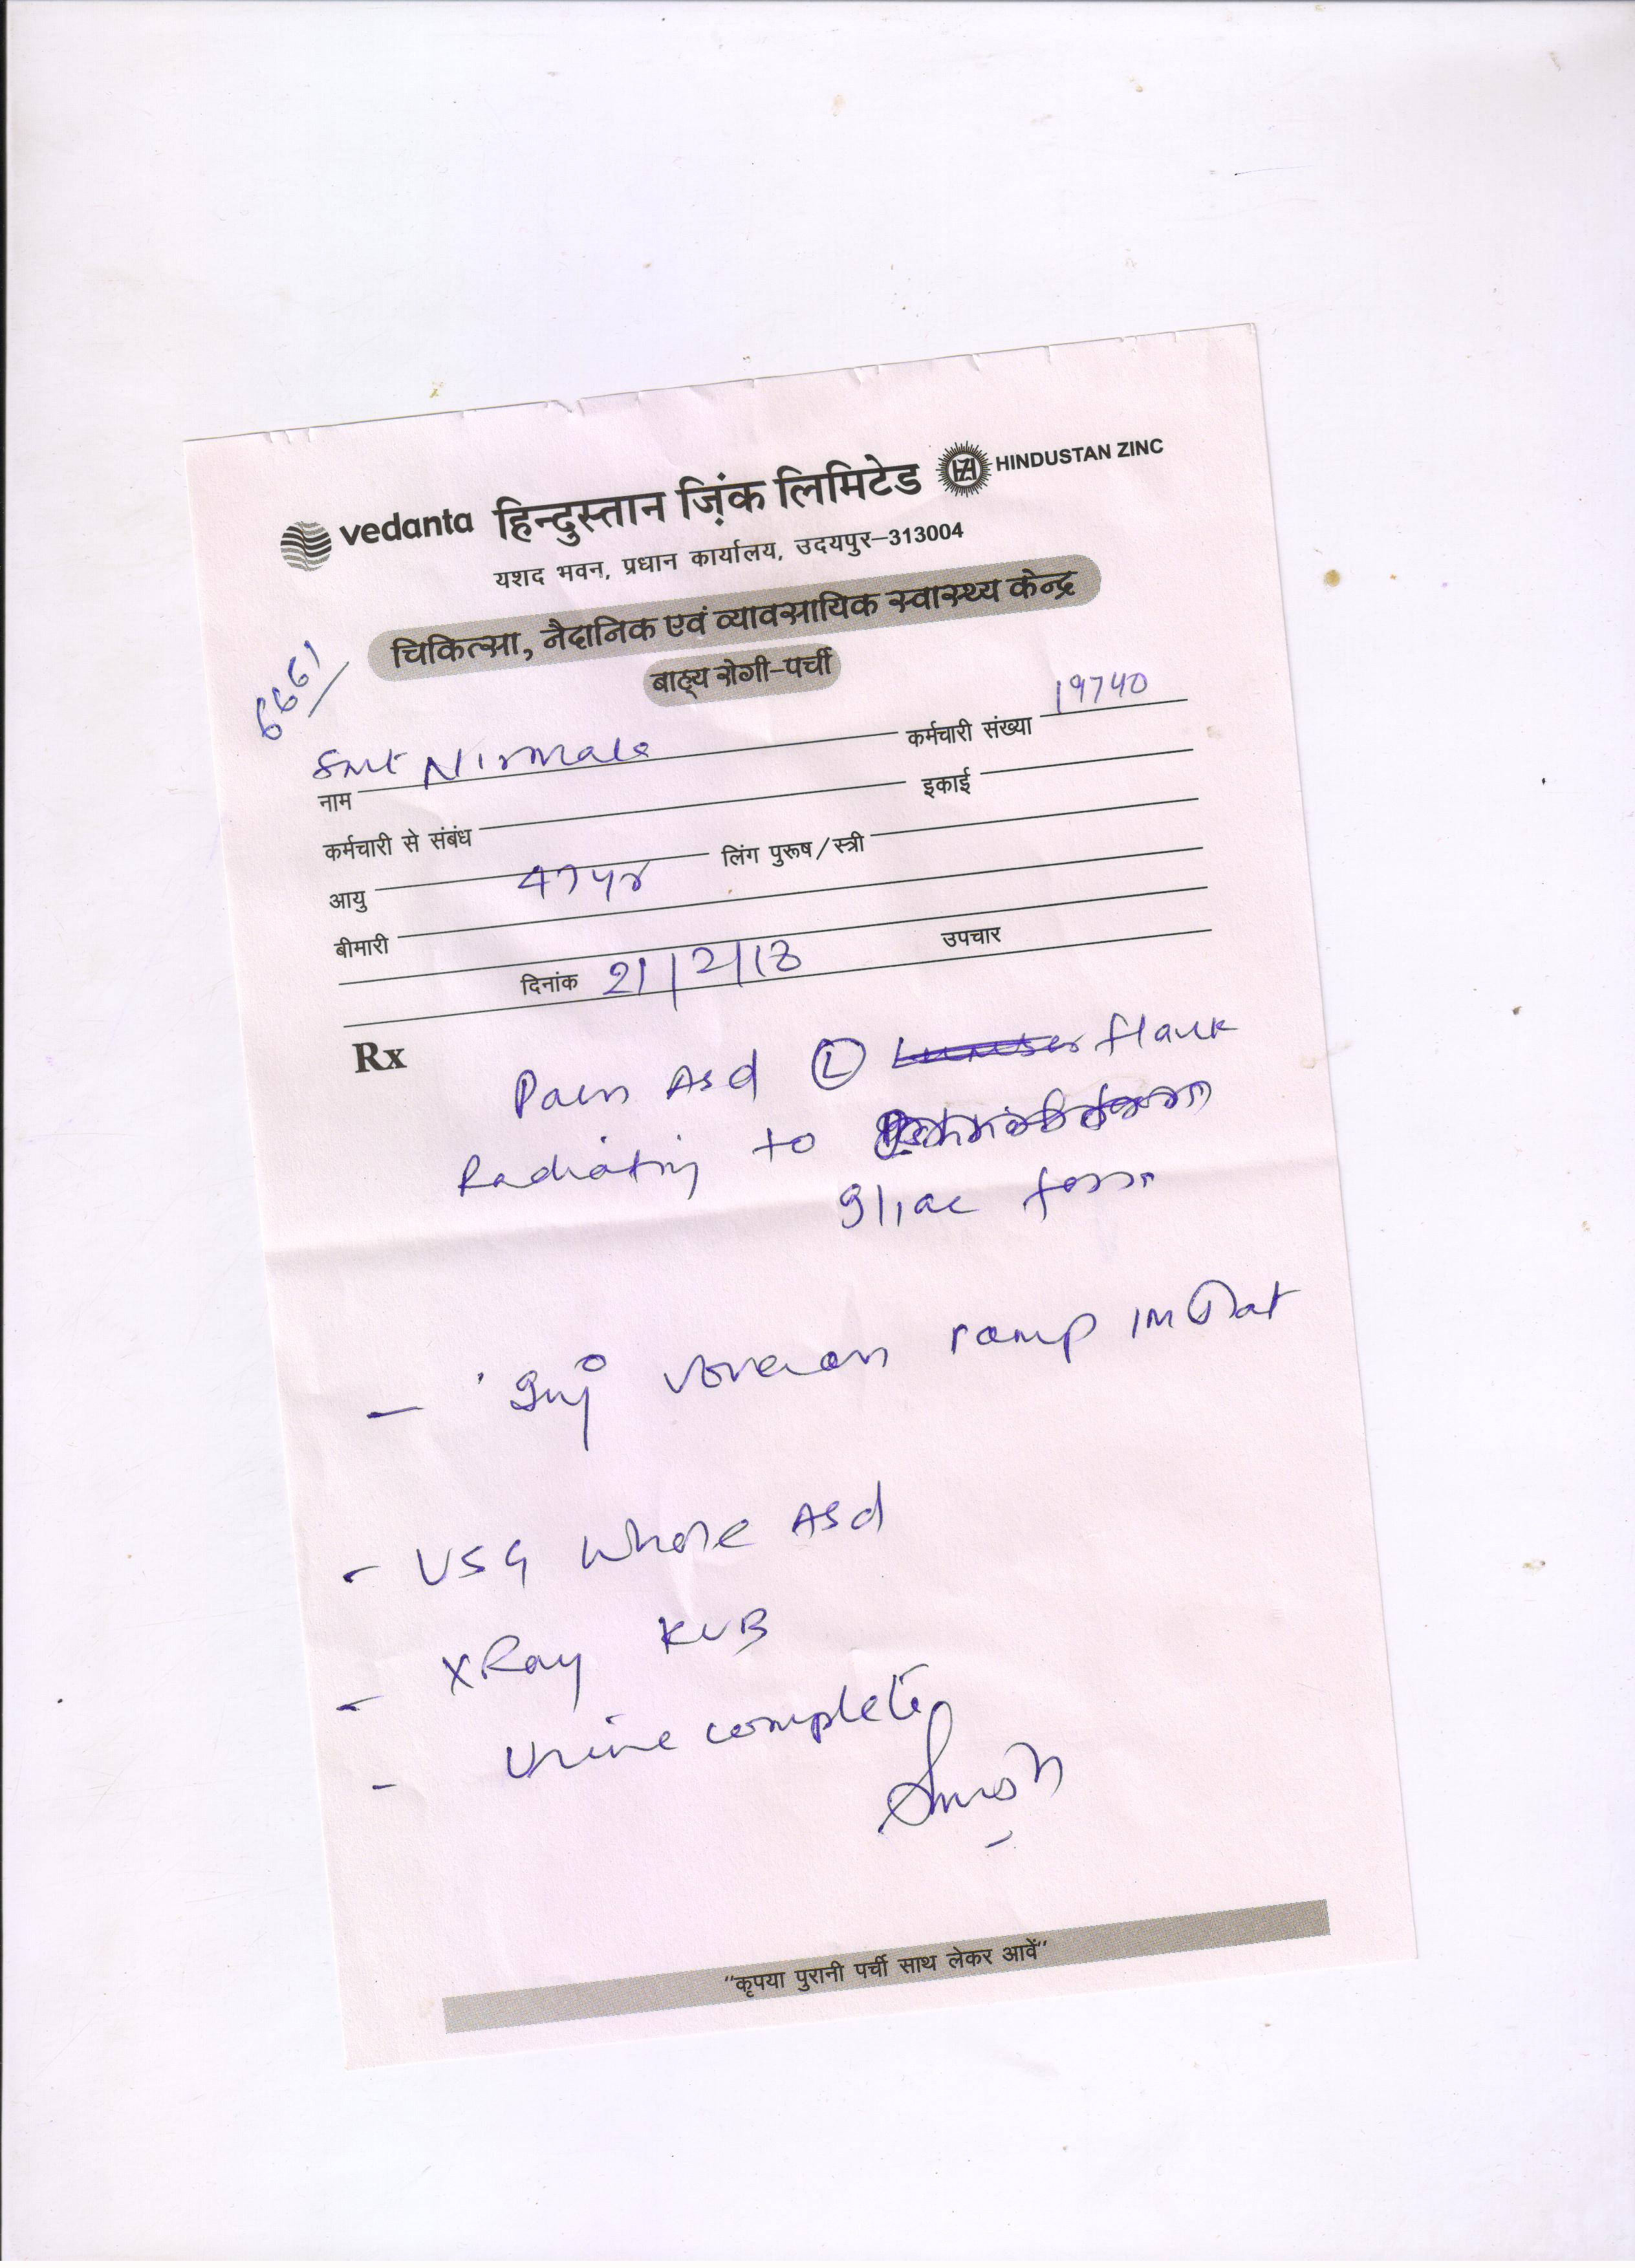 vedanta हिन्दुस्तान ज़िंक लिमिटेड HZL HINDUSTAN ZINC
यशद भवन, प्रधान कार्यालय, उदयपुर–313004
चिकित्सा, नैदानिक एवं व्यावसायिक स्वास्थ्य केन्द्र
बाह्य रोगी-पर्ची
6661
नाम Smt Nirmala कर्मचारी संख्या 19740
कर्मचारी से संबंध इकाई
आयु 47 yr लिंग पुरूष/स्त्री
बीमारी
दिनांक 21/2/18 उपचार
Rx
Pain Abd (L) flank
Radiating to
Iliac fossa
- Inj Voveran 1 amp IM Stat
- USG Whole Abd
- X Ray KUB
- Urine complete
"कृपया पुरानी पर्ची साथ लेकर आवें"